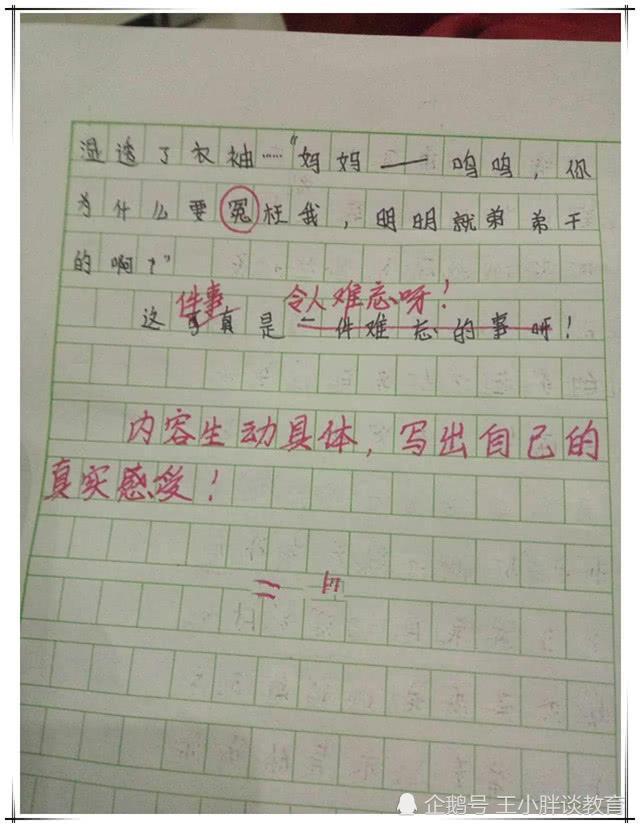 湿透了衣袖……“妈妈——呜呜，你
为什么要冤枉我，明明就弟弟干
的啊？”
件事 令人难忘呀！
这可真是一件难忘的事呀！
内容生动具体，写出自己的
真实感受！
企鹅号 王小胖谈教育